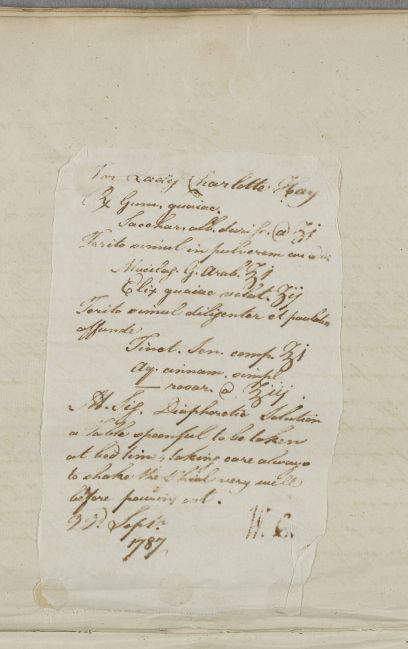 For Lady Charlotte Hay
℞ Gum. guaiac.
Sacchar. alb. duriss. @ ʒj
Terito simul in pulverem
Mucilag. G. Arab. ʒij
Elix guaiac volat. ʒij
Terito simul diligenter et paulatim
affunde
Tinct. Sen. comp. ℥j
Aq. cinnam. simpl.
— rosar. @ ℥iij.
M. Sig. Diaphoretic Solution
a table spoonful to be taken
at bed time, taking care always
to shake the Phial very well
before pouring out.
22d Septr.
1787.
W. C.